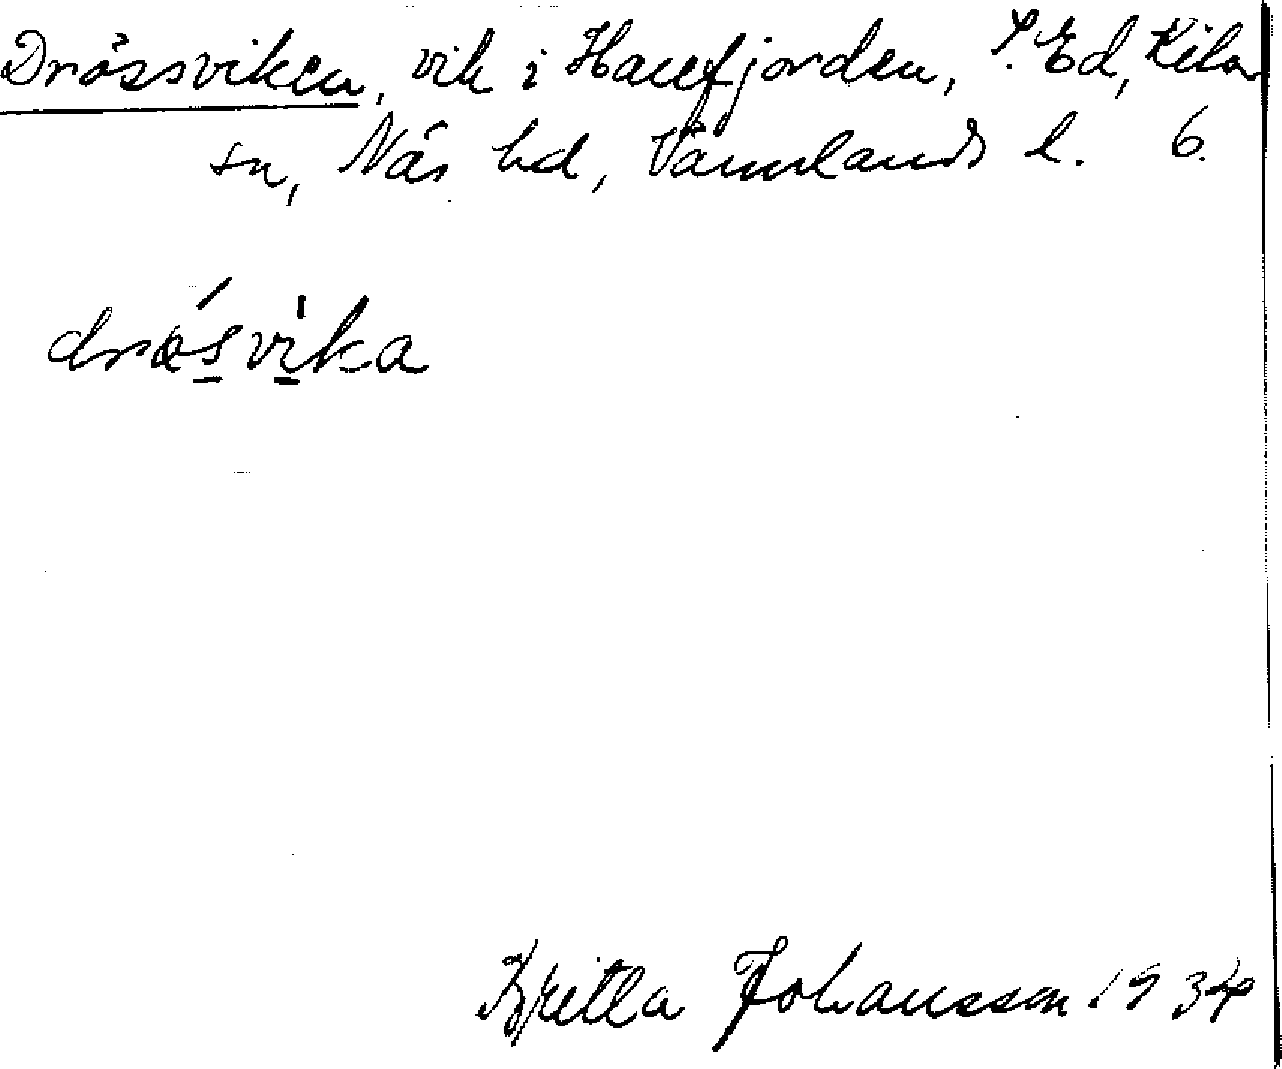 Drössviken, vik i Harefjorden, S. Ed, Kila
sn, Näs hd, Värmlands l. 6.
drösvika
Britta Johansson 1934